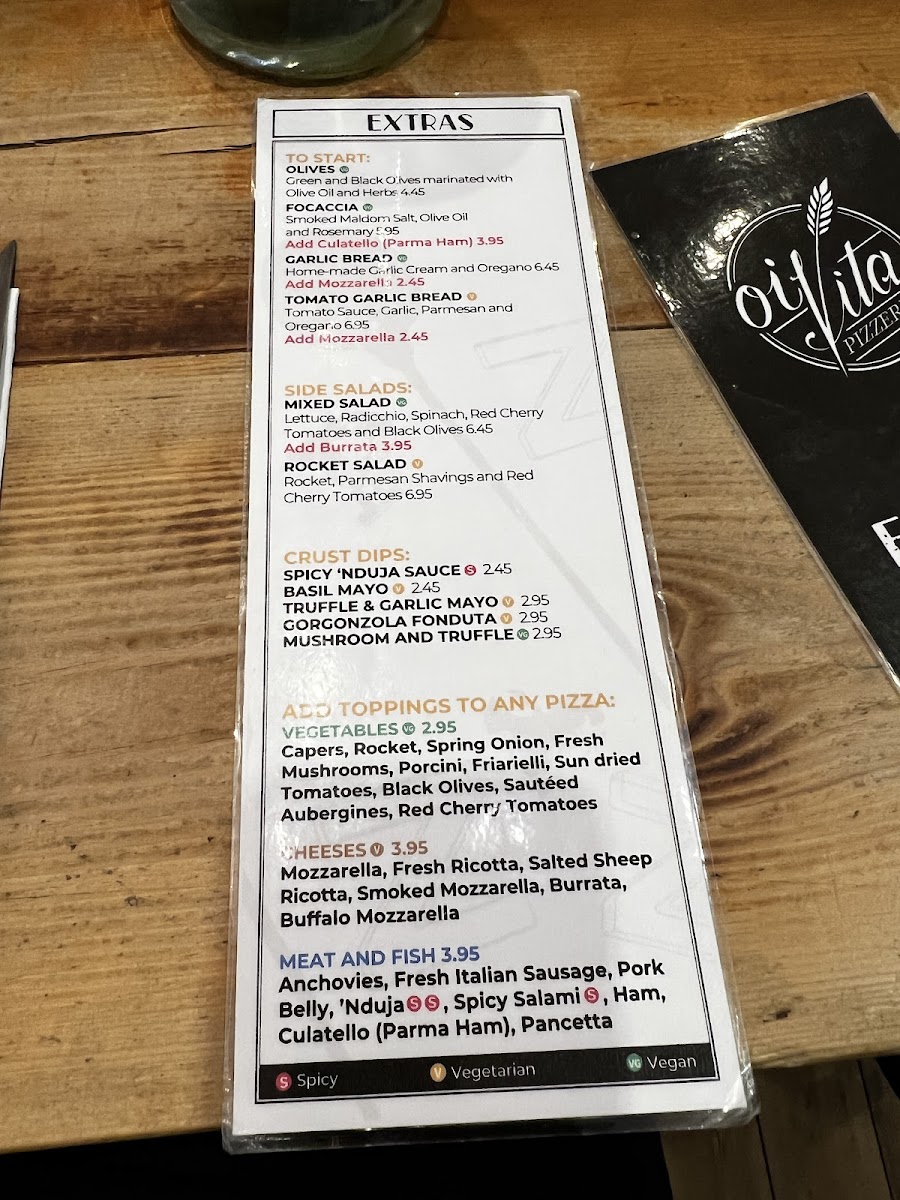 EXTRAS
TO START:
OLIVES VG
Green and Black Olives marinated with
Olive Oil and Herbs 4.45
FOCACCIA VG
Smoked Maldom Salt, Olive Oil
and Rosemary 5.95
Add Culatello (Parma Ham) 3.95
GARLIC BREAD VG
Home-made Garlic Cream and Oregano 6.45
Add Mozzarella 2.45
TOMATO GARLIC BREAD V
Tomato Sauce, Garlic, Parmesan and
Oregano 6.95
Add Mozzarella 2.45
SIDE SALADS:
MIXED SALAD VG
Lettuce, Radicchio, Spinach, Red Cherry
Tomatoes and Black Olives 6.45
Add Burrata 3.95
ROCKET SALAD V
Rocket, Parmesan Shavings and Red
Cherry Tomatoes 6.95
CRUST DIPS:
SPICY ‘NDUJA SAUCE S 2.45
BASIL MAYO V 2.45
TRUFFLE & GARLIC MAYO V 2.95
GORGONZOLA FONDUTA V 2.95
MUSHROOM AND TRUFFLE VG 2.95
ADD TOPPINGS TO ANY PIZZA:
VEGETABLES VG 2.95
Capers, Rocket, Spring Onion, Fresh
Mushrooms, Porcini, Friarielli, Sun dried
Tomatoes, Black Olives, Sautéed
Aubergines, Red Cherry Tomatoes
CHEESES V 3.95
Mozzarella, Fresh Ricotta, Salted Sheep
Ricotta, Smoked Mozzarella, Burrata,
Buffalo Mozzarella
MEAT AND FISH 3.95
Anchovies, Fresh Italian Sausage, Pork
Belly, ’Nduja S S, Spicy Salami S, Ham,
Culatello (Parma Ham), Pancetta
S Spicy V Vegetarian VG Vegan
oi Vita
PIZZER